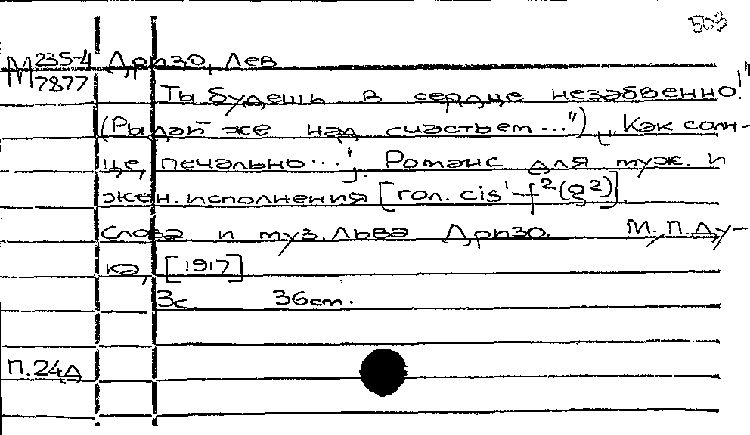 503
М 235-4
7877
Дризо, Лев
Ты будешь в сердце незабвенно!"
(Рыдай же над счастьем...") „Как солн-
це, печально...". Романс для муж. и
жен. исполнения [гол. cis¹-f²(g²)]
Слова и муз. Льва Дризо. М., П. Ду-
ка, [1917]
3с 36cm.
П.24д